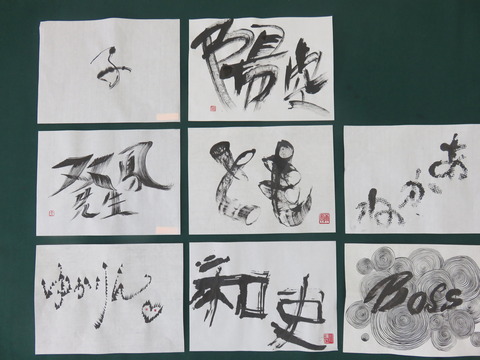 子
陽虎
先生
とも
あかね
ゆかりん
和史
Boss